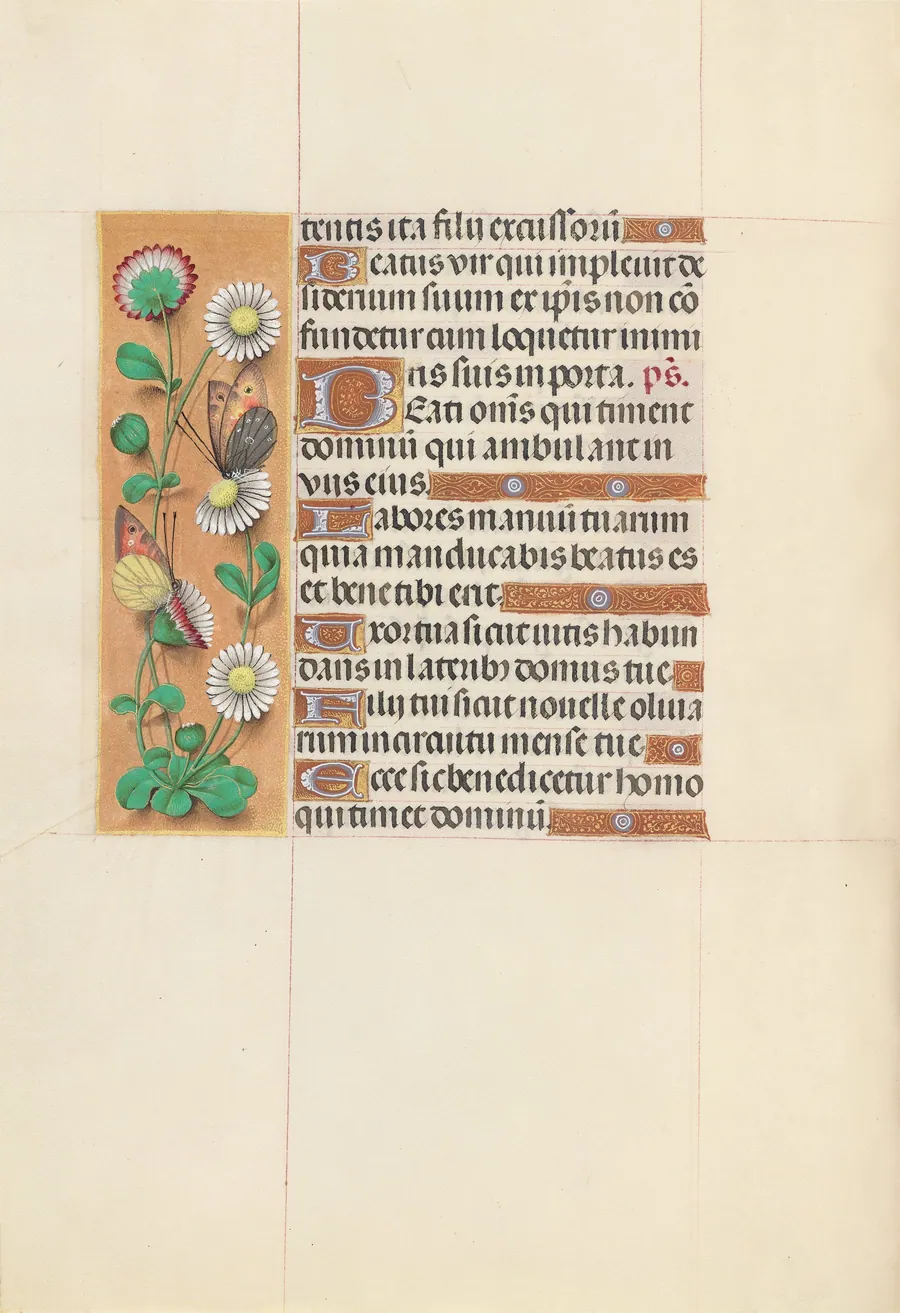 tentis ita filij excussorū
Beatus vir qui impleuit de
siderium suum ex ip̄is non cō
fundetur cum loquetur inimi
cis suis in porta. ps̄.
BEati om̄s qui timent
dominū qui ambulant in
viis eius
Labores manuū tuarum
quia manducabis beatus es
et bene tibi erit
Uxor tua sicut uitis habun
dans in laterib⁹ domus tue
Filij tui sicut nouelle oliua
rum in circuitu mense tue
Ecce sic benedicetur homo
qui timet dominū